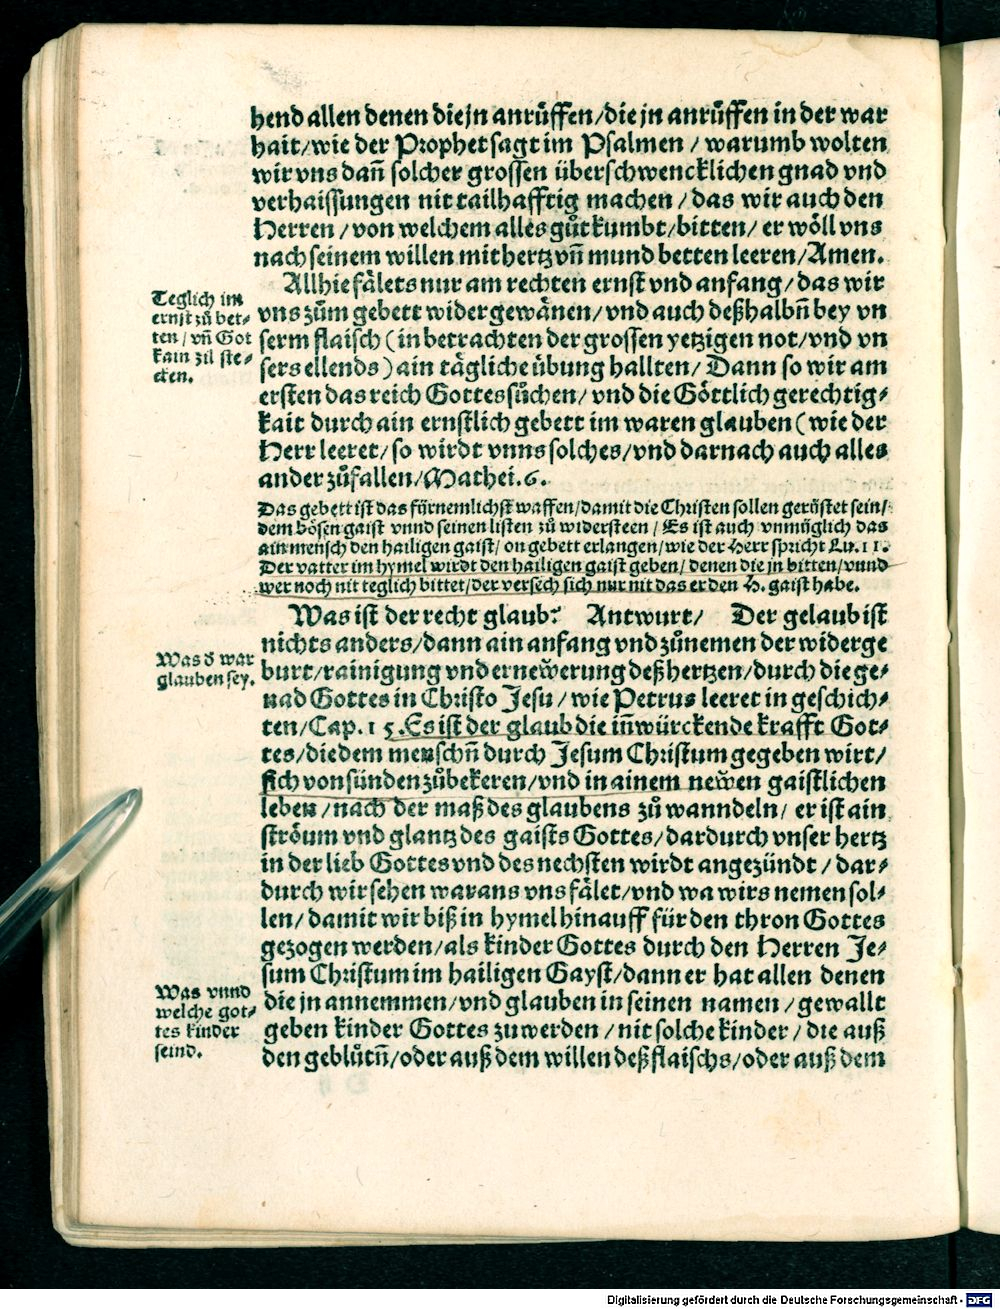 hend allen denen die jn anrůffen/die jn anrůffen in der war
hait/wie der Prophet sagt im Psalmen / warumb wolten
wir vns dañ solcher grossen überschwencklichen gnad vnd
verhaissungen nit tailhafftig machen / das wir auch den
Herren / von welchem alles gůt kumbt/bitten/ er wöll vns
nach seinem willen mit hertz vñ mund betten leeren/Amen.
Allhie fälets nur am rechten ernst vnd anfang/das wir
vns zům gebett wider gewänen/vnd auch deßhalbñ bey vn
serm flaisch (in betrachten der grossen yetzigen not/vnd vn
sers ellends) ain tägliche übung hallten/ Dann so wir am
ersten das reich Gottes sůchen/ vnd die Göttlich gerechtig-
kait durch ain ernstlich gebett im waren glauben (wie der
Herr leeret/so wirdt vnns solches/vnd darnach auch alles
ander zůfallen/Mathei.6.
Teglich im
ernst zů bet-
ten / vñ Got
kain zil ste-
cken.
Das gebett ist das fürnemlichst waffen/damit die Christen sollen gerüstet sein/
dem bösen gaist vnnd seinen listen zů widersteen / Es ist auch vnmüglich das
ain mensch den hailigen gaist/ on gebett erlangen/wie der Herr spricht Lu.11.
Der vatter im hymel wirdt den hailigen gaist geben/ denen die jn bitten/vnnd
wer noch nit teglich bittet/der versech sich nur nit das er den H. gaist habe.
Was ist der recht glaub? Antwurt/ Der gelaub ist
nichts anders/dann ain anfang vnd zůnemen der widerge
burt/rainigung vnd ernewerung deß hertzen/durch die ge-
nad Gottes in Christo Jesu / wie Petrus leeret in geschich-
ten/Cap.15. Es ist der glaub die iñwürckende krafft Got-
tes/die dem menschñ durch Jesum Christum gegeben wirt/
sich von sünden zůbekeren/vnd in ainem newen gaistlichen
leben / nach der maß des glaubens zů wanndeln/ er ist ain
ströum vnd glantz des gaists Gottes/dardurch vnser hertz
in der lieb Gottes vnd des nechsten wirdt angezündt / dar-
durch wir sehen warans vns fälet/vnd wa wirs nemen sol-
len/damit wir biß in hymel hinauff für den thron Gottes
gezogen werden/als kinder Gottes durch den Herren Je-
sum Christum im hailigen Gayst/dann er hat allen denen
die jn annemmen/vnd glauben in seinen namen / gewallt
geben kinder Gottes zuwerden / nit solche kinder / die auß
den geblůtñ/oder auß dem willen deß flaischs/oder auß dem
Was d̄ war
glauben sey.
Was vnnd
welche got-
tes kinder
seind.
Digitalisierung gefördert durch die Deutsche Forschungsgemeinschaft - DFG